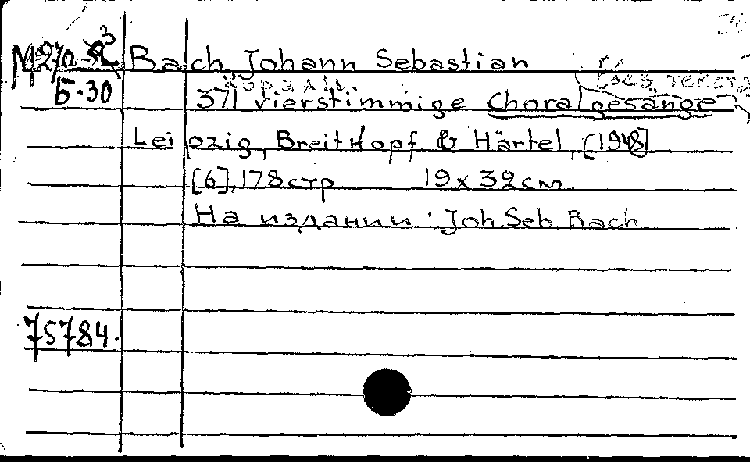 Bach Johann Sebastian
Б-30
Хоралы
371 vierstimmige Choralgesänge
Leipzig, Breitkopf & Härtel, [1948]
[6], 178 стр 19 x 32 см
На издании: Joh Seb Bach
75784.